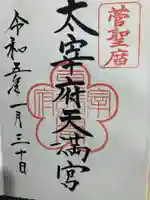 菅聖廟
太宰府天満宮
令和五年一月三十日